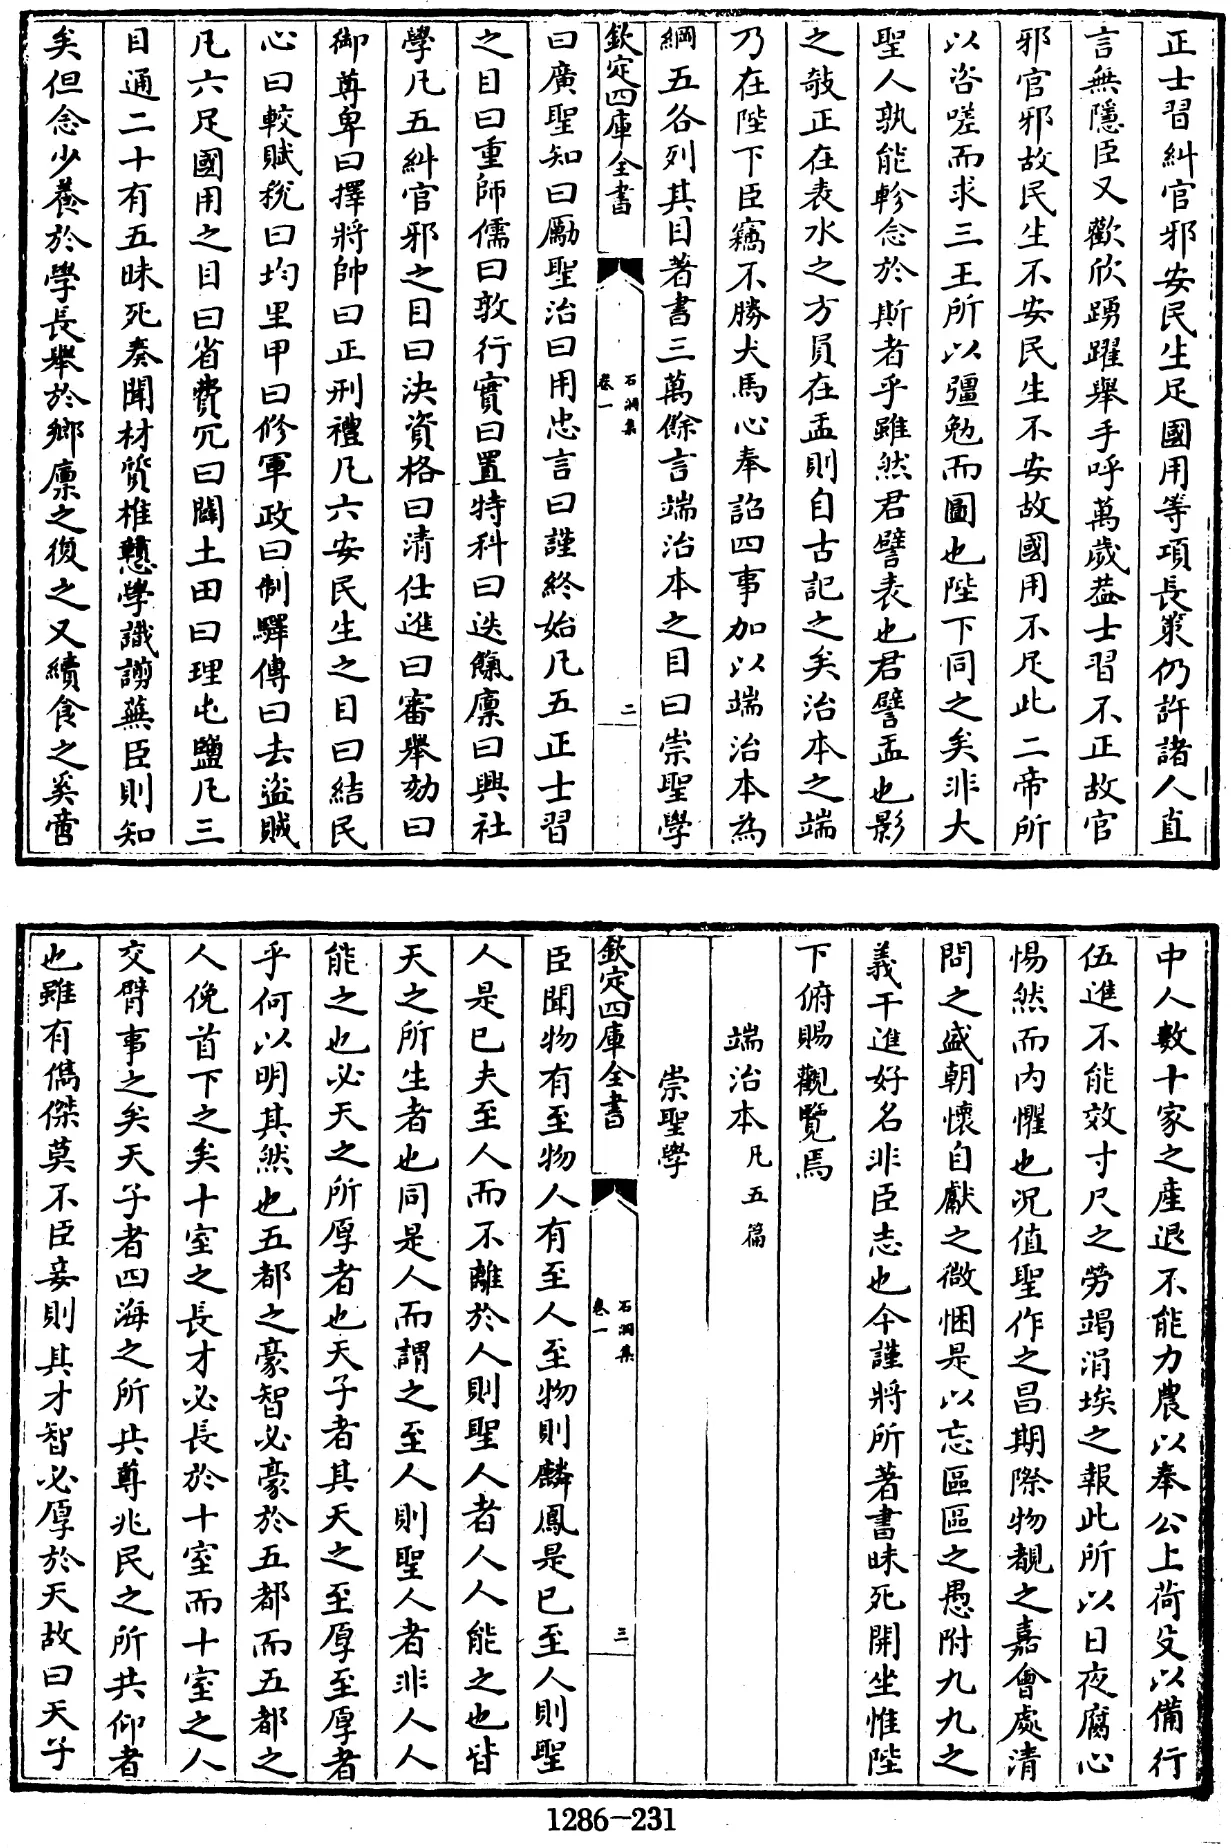 正士習糾官邪安民生足國用等項長策仍許諸人直
言無隱臣又歡欣踴躍舉手呼萬歲葢士習不正故官
邪官邪故民生不安民生不安故國用不足此二帝所
以咨嗟而求三王所以彊勉而圖也陛下同之矣非大
聖人孰能軫念於斯者乎雖然君譬表也君譬盂也影
之敧正在表水之方員在盂則自古記之矣治本之端
乃在陛下臣竊不勝犬馬心奉詔四事加以端治本為
綱五各列其目著書三萬餘言端治本之目曰崇聖學
欽定四庫全書
石洞集
卷一
二
曰廣聖知曰勵聖治曰用忠言曰謹終始凡五正士習
之目曰重師儒曰敦行實曰置特科曰迭餼廪曰興社
學凡五糾官邪之目曰決資格曰清仕進曰審舉劾曰
御尊卑曰擇將帥曰正刑禮凡六安民生之目曰結民
心曰較賦稅曰均里甲曰修軍政曰制驛傳曰去盜賊
凡六足國用之目曰省費冗曰闢土田曰理屯鹽凡三
目通二十有五昧死奏聞材質椎戇學識謭蕪臣則知
矣但念少養於學長舉於鄉廪之復之又續食之奚啻
中人數十家之產退不能力農以奉公上荷殳以備行
伍進不能效寸尺之勞竭涓埃之報此所以日夜腐心
惕然而内懼也況值聖作之昌期際物覩之嘉會處清
問之盛朝懷自獻之微悃是以忘區區之愚附九九之
義干進好名非臣志也今謹將所著書昧死開坐惟陛
下俯賜觀覽焉
端治本凡五篇
崇聖學
欽定四庫全書
石洞集
卷一
三
臣聞物有至物人有至人至物則麟鳳是已至人則聖
人是已夫至人而不離於人則聖人者人人能之也皆
天之所生者也同是人而謂之至人則聖人者非人人
能之也必天之所厚者也天子者其天之至厚至厚者
乎何以明其然也五都之豪智必豪於五都而五都之
人俛首下之矣十室之長才必長於十室而十室之人
交臂事之矣天子者四海之所共尊兆民之所共仰者
也雖有儁傑莫不臣妾則其才智必厚於天故曰天子
1286—231